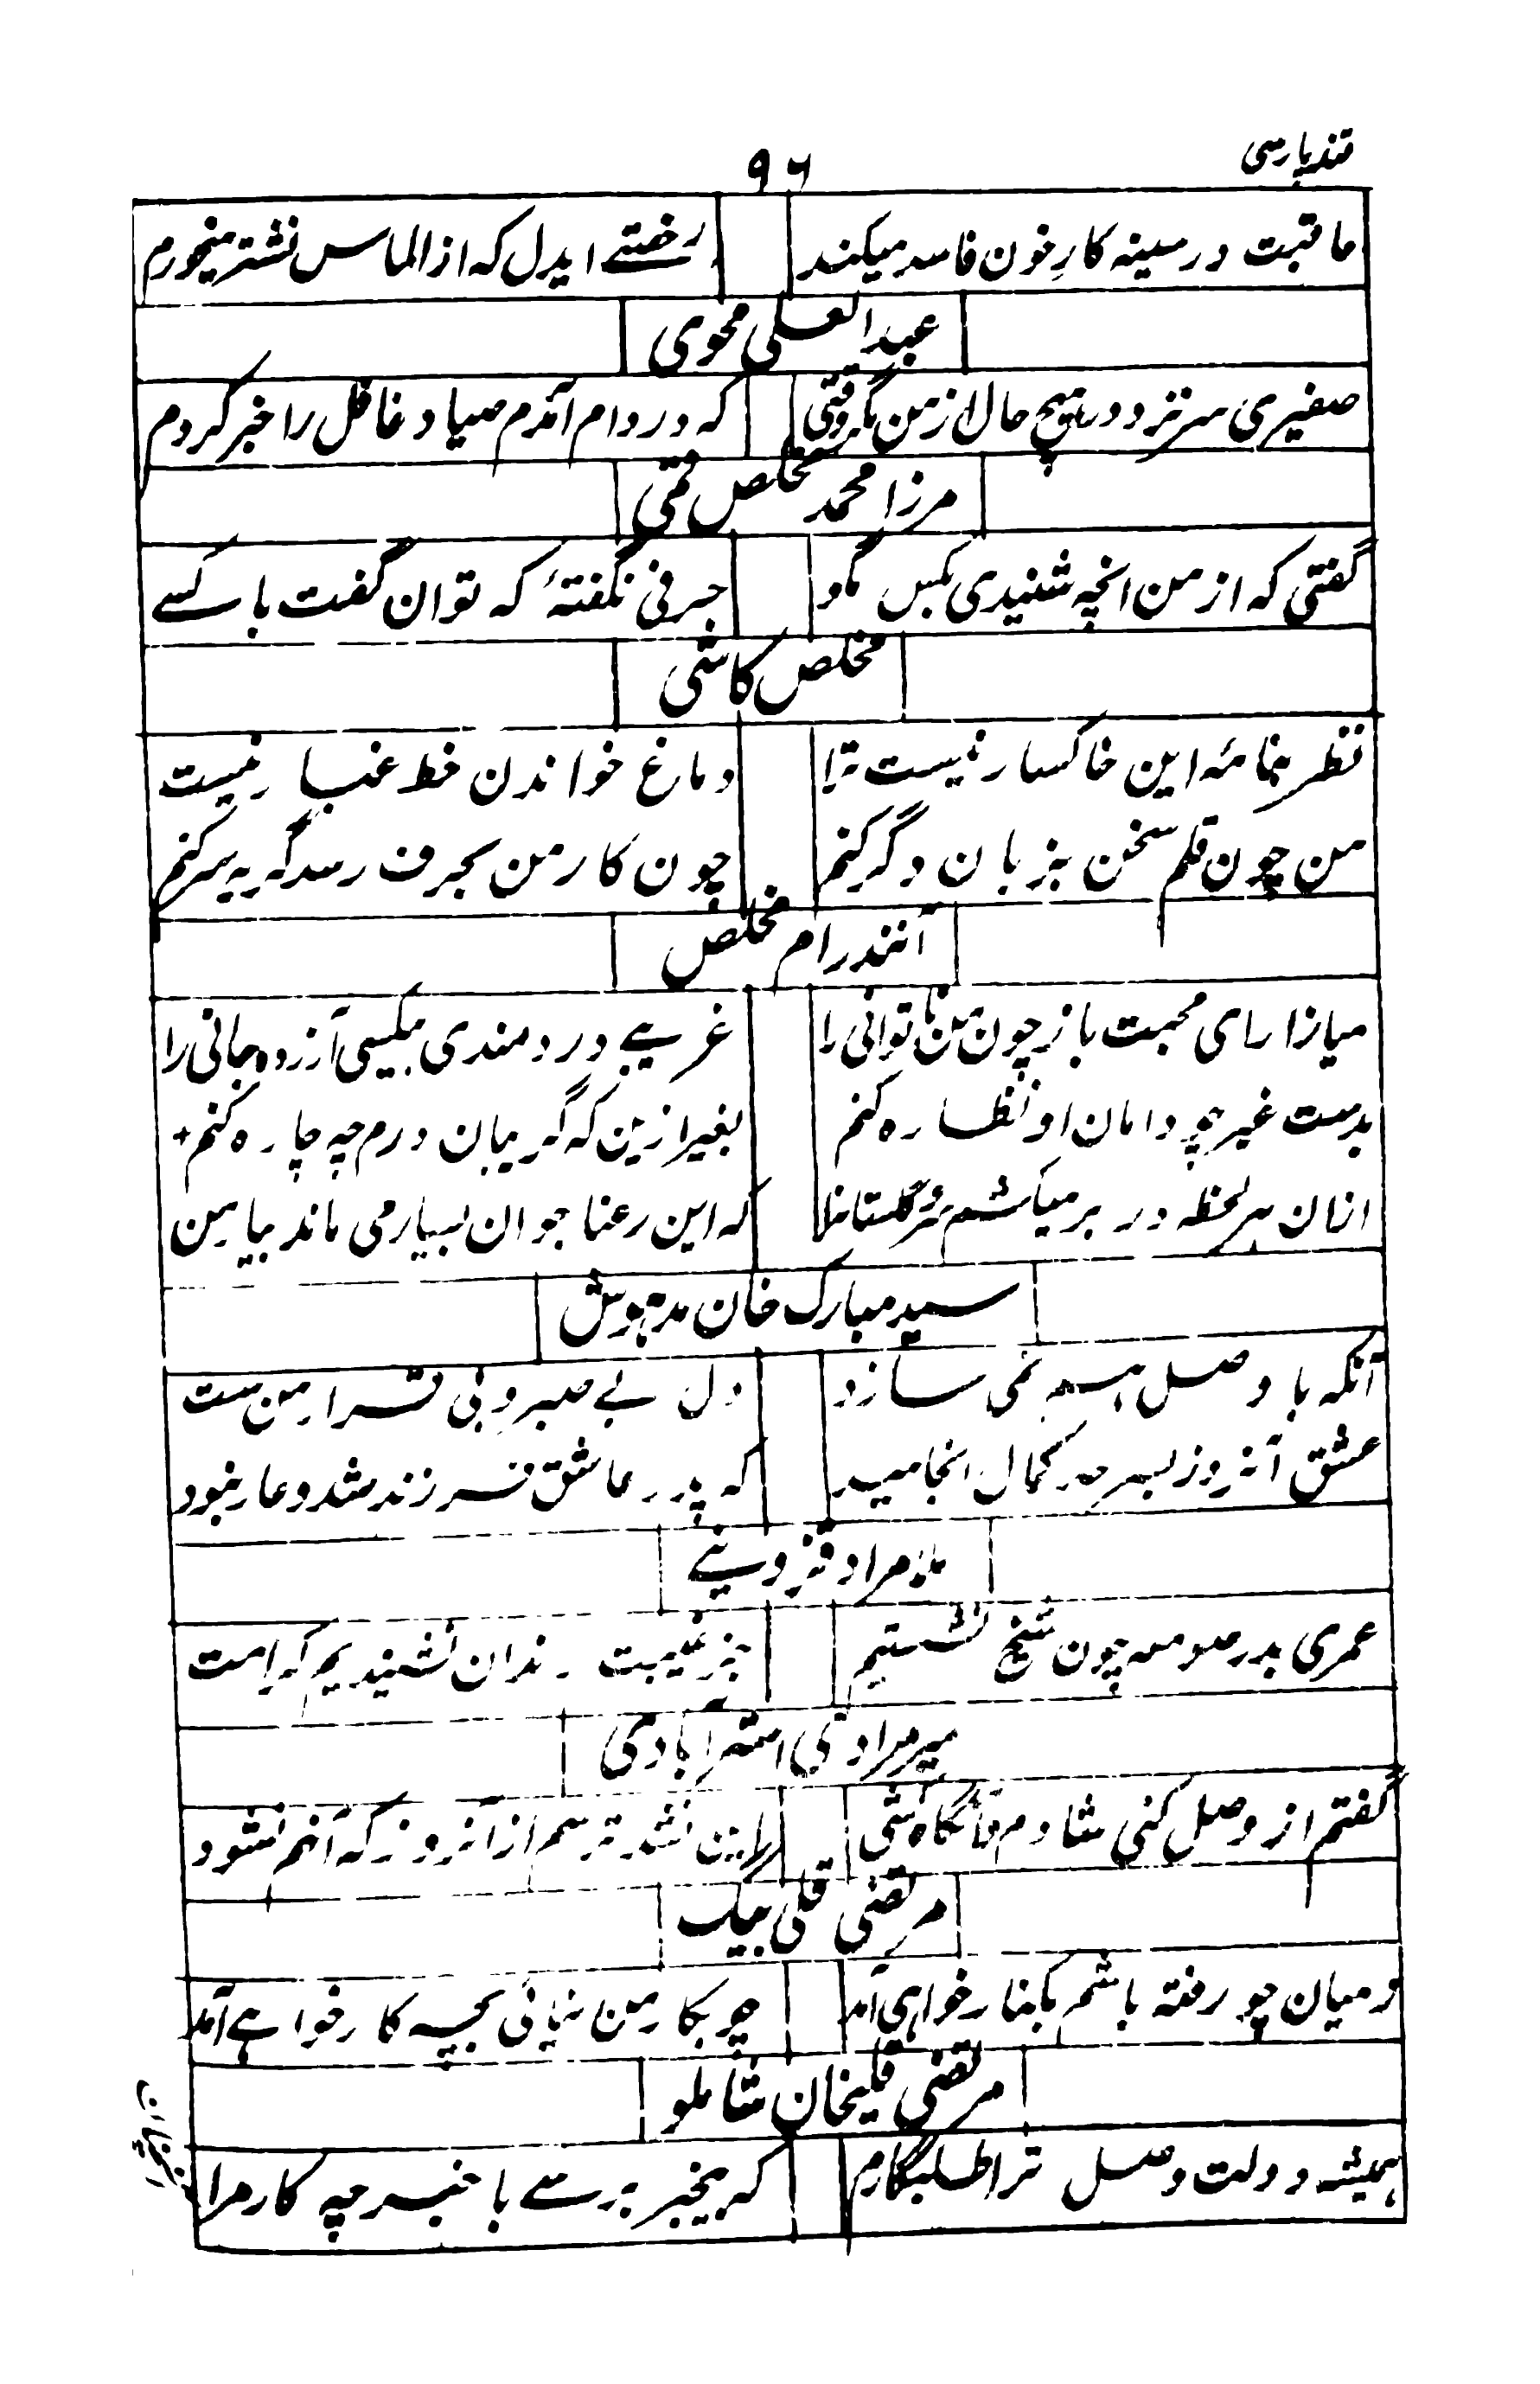 قند پارسی
۹۶
عاقبت در سینه کارِ خون فاسد میکند رخصتے ایدل که از الماس نشتر میخورم
عبدالعلی محوی
صفیری سر نزد در هیچ حال از من مگر وقتی که در دام آمدم صیاد غافل را خبر کردم
مرزا محمد مخلص قمی
گفتی که از من انچه شنیدی بکس مگو حرفی نگفتهٔ که توان گفت با کسے
مخلص کاشی
نظر بنامهٔ این خاکسار نیست ترا دماغ خواندن خط غبار نیست
من چون قلم سخن بزبان دگر کنم چون کار من بحرف رسد گریه سر کنم
آنندرام مخلص
میازار ای محبت باز چون من ناتوانی را غریبے دردمندی بیکسی آزرده جانی را
بدست غیر چو دامان او نظاره کنم بغیر ازین که گریبان درم چه چاره کنم
ازان هر لحظه در بر میکشم سرو گلستانرا که این رعنا جوان بسیار می ماند بیار من
سید مبارک خان مدهوش
آنکه با وصل هم نمی سازد دل بے صبر و بی قرار من ست
عشق آنروز بسر حد کمال انجامید که پدر عاشق فرزند شد و عار نبود
ملا مراد قزوینے
عمری بدر صومعه چون شیخ نشستیم جز غیبت رندان نشنیدیم کرامت
میر مرادی استرآبادی
گفتم از وصل کنی شادم تا گاه کشی این نشد ترسم از آنروز که آنهم نشود
مرتضی قلی بیگ
ز میان چو رفته باشم بکنار خواهی آمد چو بکار من نیائی بچه کار خواهے آمد
مرتضی قلیخان شاملو
همیشه دولت وصل ترا طلبگارم که بیخبر برسے با خبر چه کار مرا